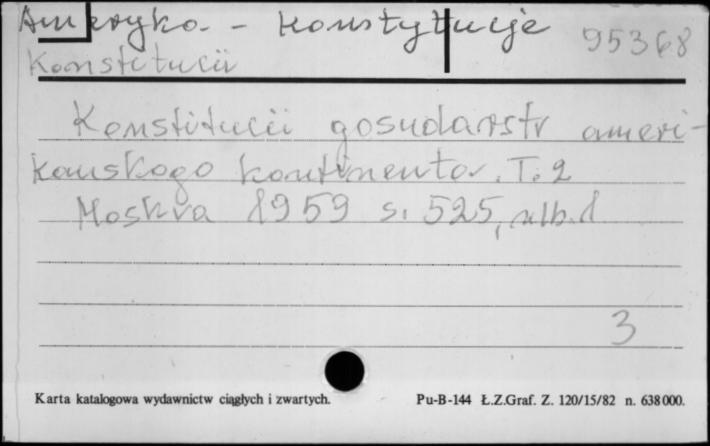 Ameryka - Konstytucje 95368
Konstitucii
Konstitucii gosudarstv ameri-
kanskogo kontinenta. T. 2
Moskva 1959 s. 525,
3
Karta katalogowa wydawnictw ciągłych i zwartych. Pu-B-144 Ł.Z.Graf. Z. 120/15/82 n. 638000.